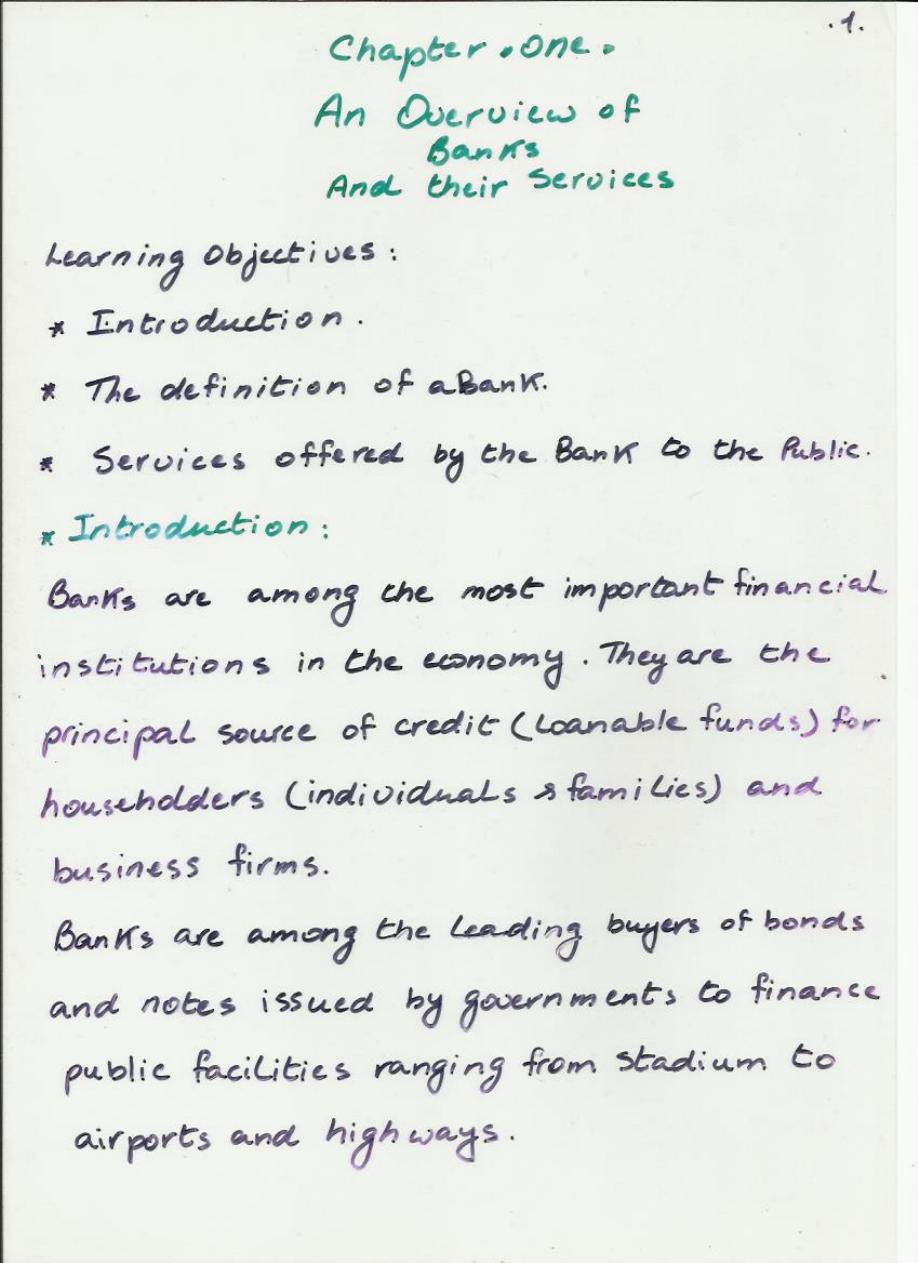 .1.
Chapter . one .
An Overview of
Banks
And their Services
Learning Objectives :
* Introduction .
* The definition of a Bank.
* Services offered by the Bank to the Public.
* Introduction :
Banks are among the most important financial
institutions in the economy . They are the
principal source of credit (Loanable funds) for
householders (individuals & families) and
business firms.
Banks are among the leading buyers of bonds
and notes issued by governments to finance
public facilities ranging from stadium to
airports and highways.